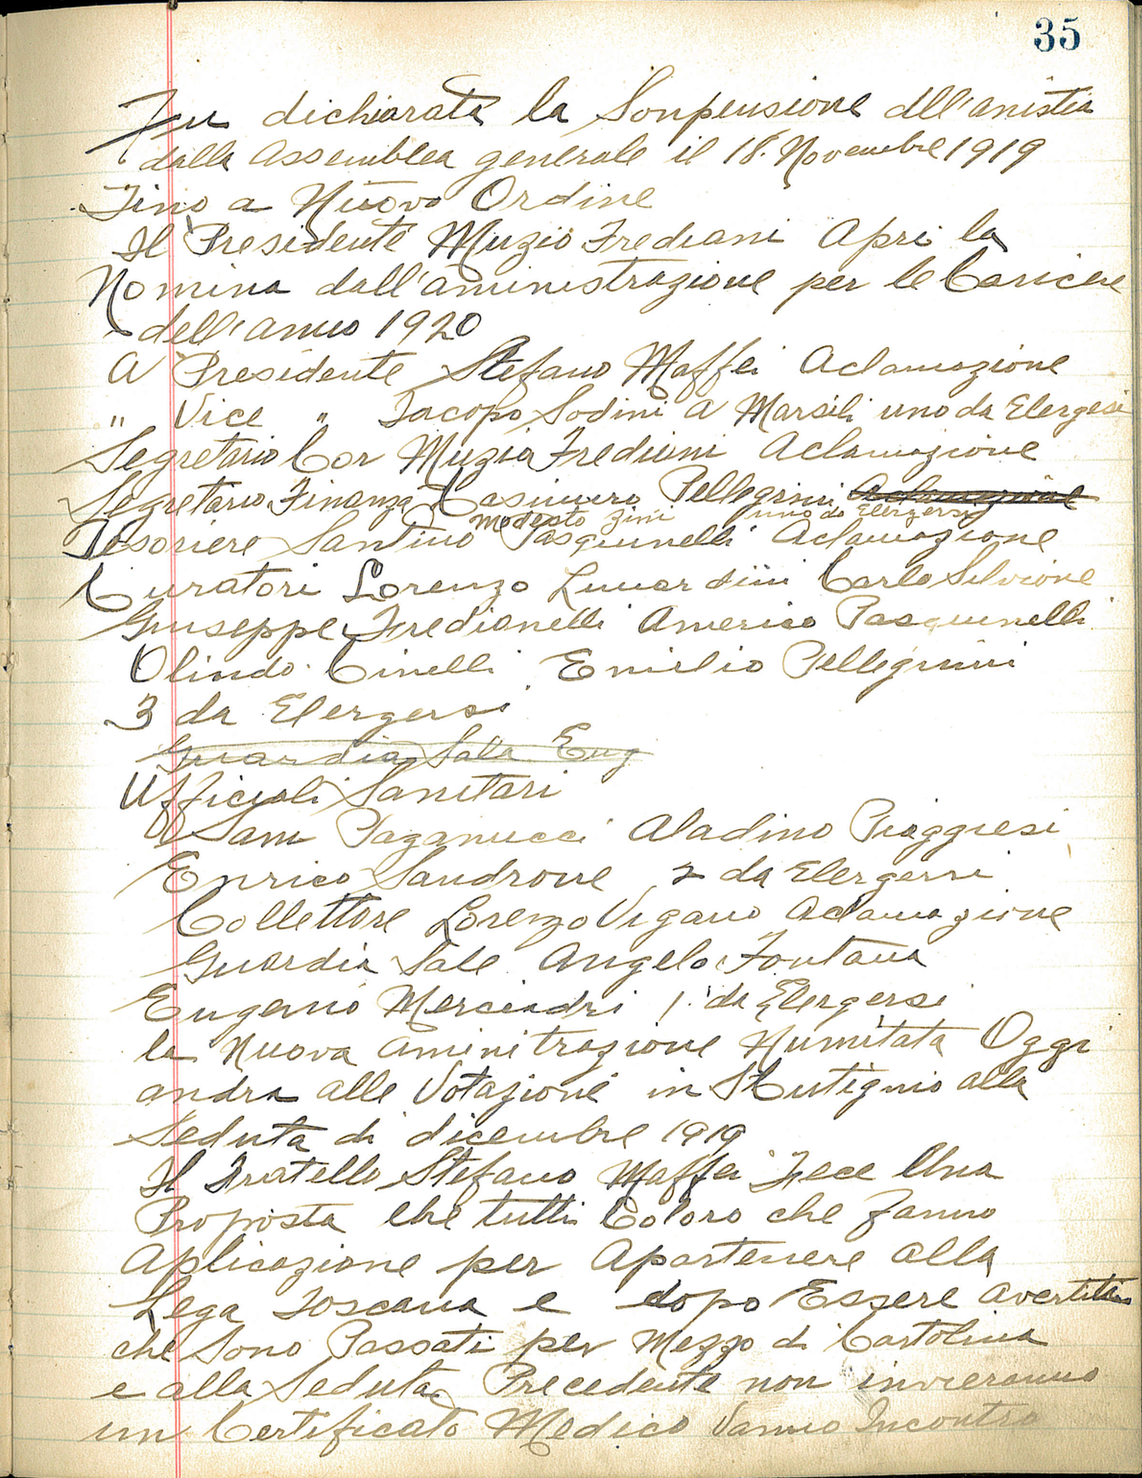 35
Fu dichiarata la Sonpensione dll'anistia
dalla Assemblea generale il 18. Novembre 1919
Fino a Nuovo Ordine
Il Presidente Muzio Frediani Apri la
Nomina dall'aministrazione per le Cariche
dell'anno 1920
A Presidente Stefano Maffei Aclamazione
" Vice " Iacopo Sodini A Marsili uno da Elergesi
Segretario Cor Muzio Frediani Aclamazione
Segretario Finanza Casimiro Pellegrini Aclamazione
Modesto Zini uno da Elergersi
Tesoriere Santino Pasquinelli Aclamazione
Curatori Lorenzo Lunardini Carlo Silvione
Giuseppe Fredianelli Americo Pasquinelli
Olindo Cinelli Emilio Pellegrini
3 da Elergersi
Guardia Sala Eug
Ufficiali Sanitari
Sam Paganucci Aladino Piaggiesi
Enrico Sandrone 2 da Elergersi
Collettore Lorenzo Vigano Aclamazione
Guardia Sale Angelo Fontana
Eugenio Merciadri 1 da Elergersi
la Nuova Aminitrazione Numitata Oggi
andra alle Votazione in Scutignio alla
Seduta di dicembre 1919
Il Fratello Stefano Maffei Fece Una
Proposta Che tutti Coloro che fanno
Aplicazione per Apartenere alla
Lega Toscana e dopo Essere avertiti
che Sono Passati per Mezzo di Cartolina
e alla Seduta Precedente non invieranno
un Certificato Medico Vanno Incontro